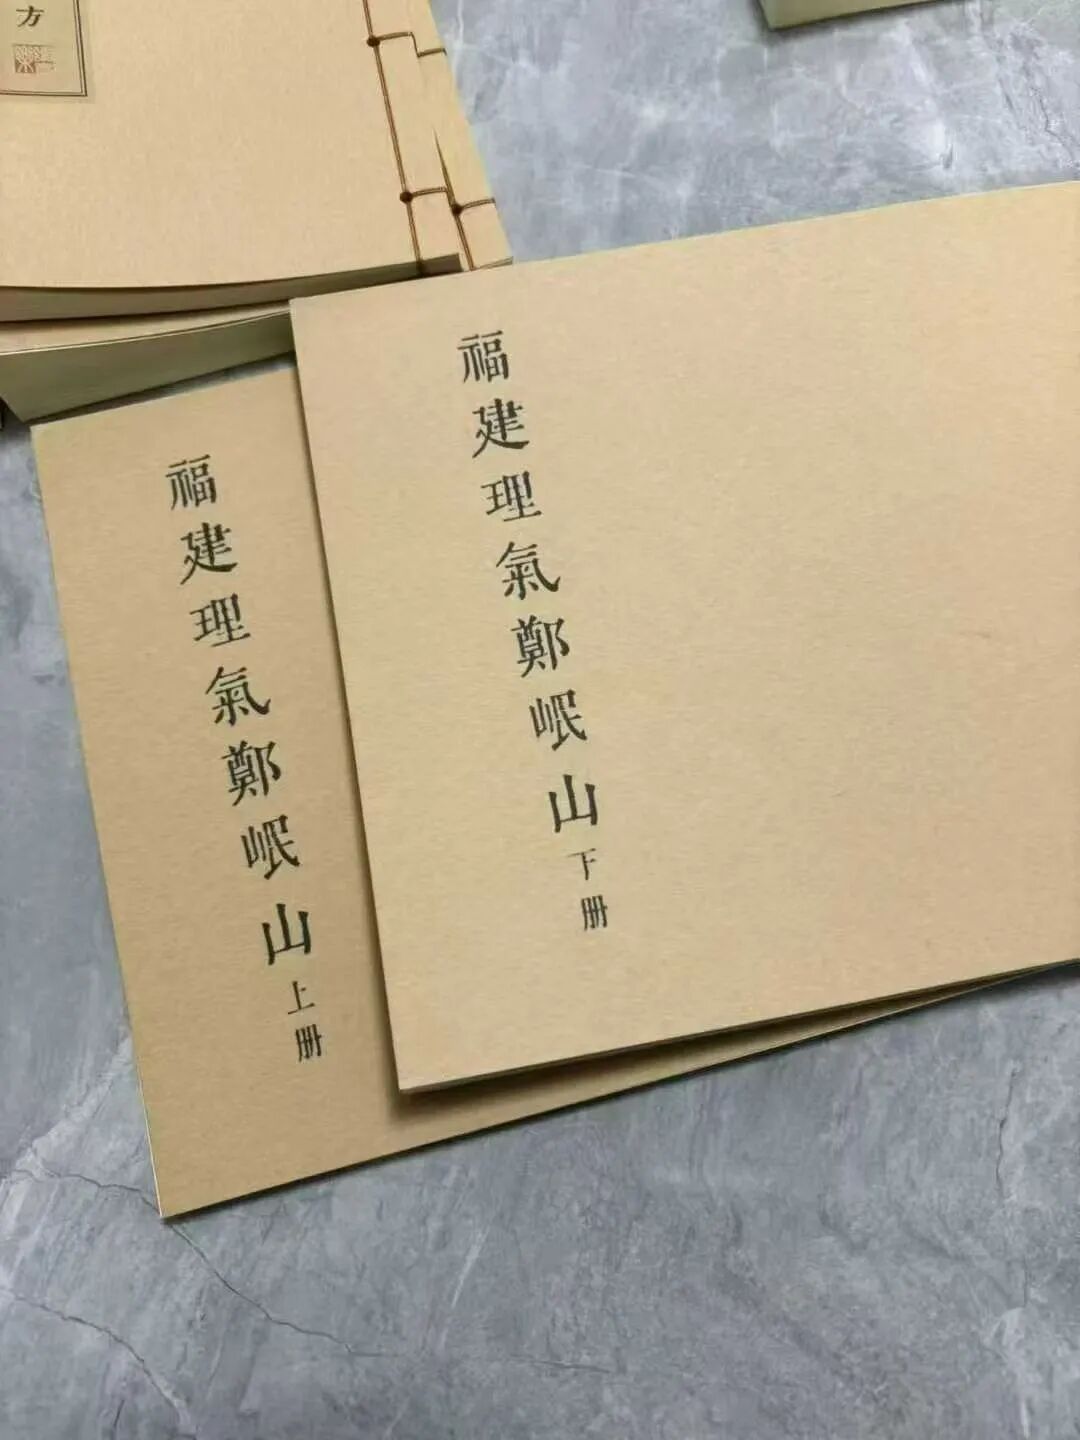 方
福建理氣鄭岷山上册
福建理氣鄭岷山下册